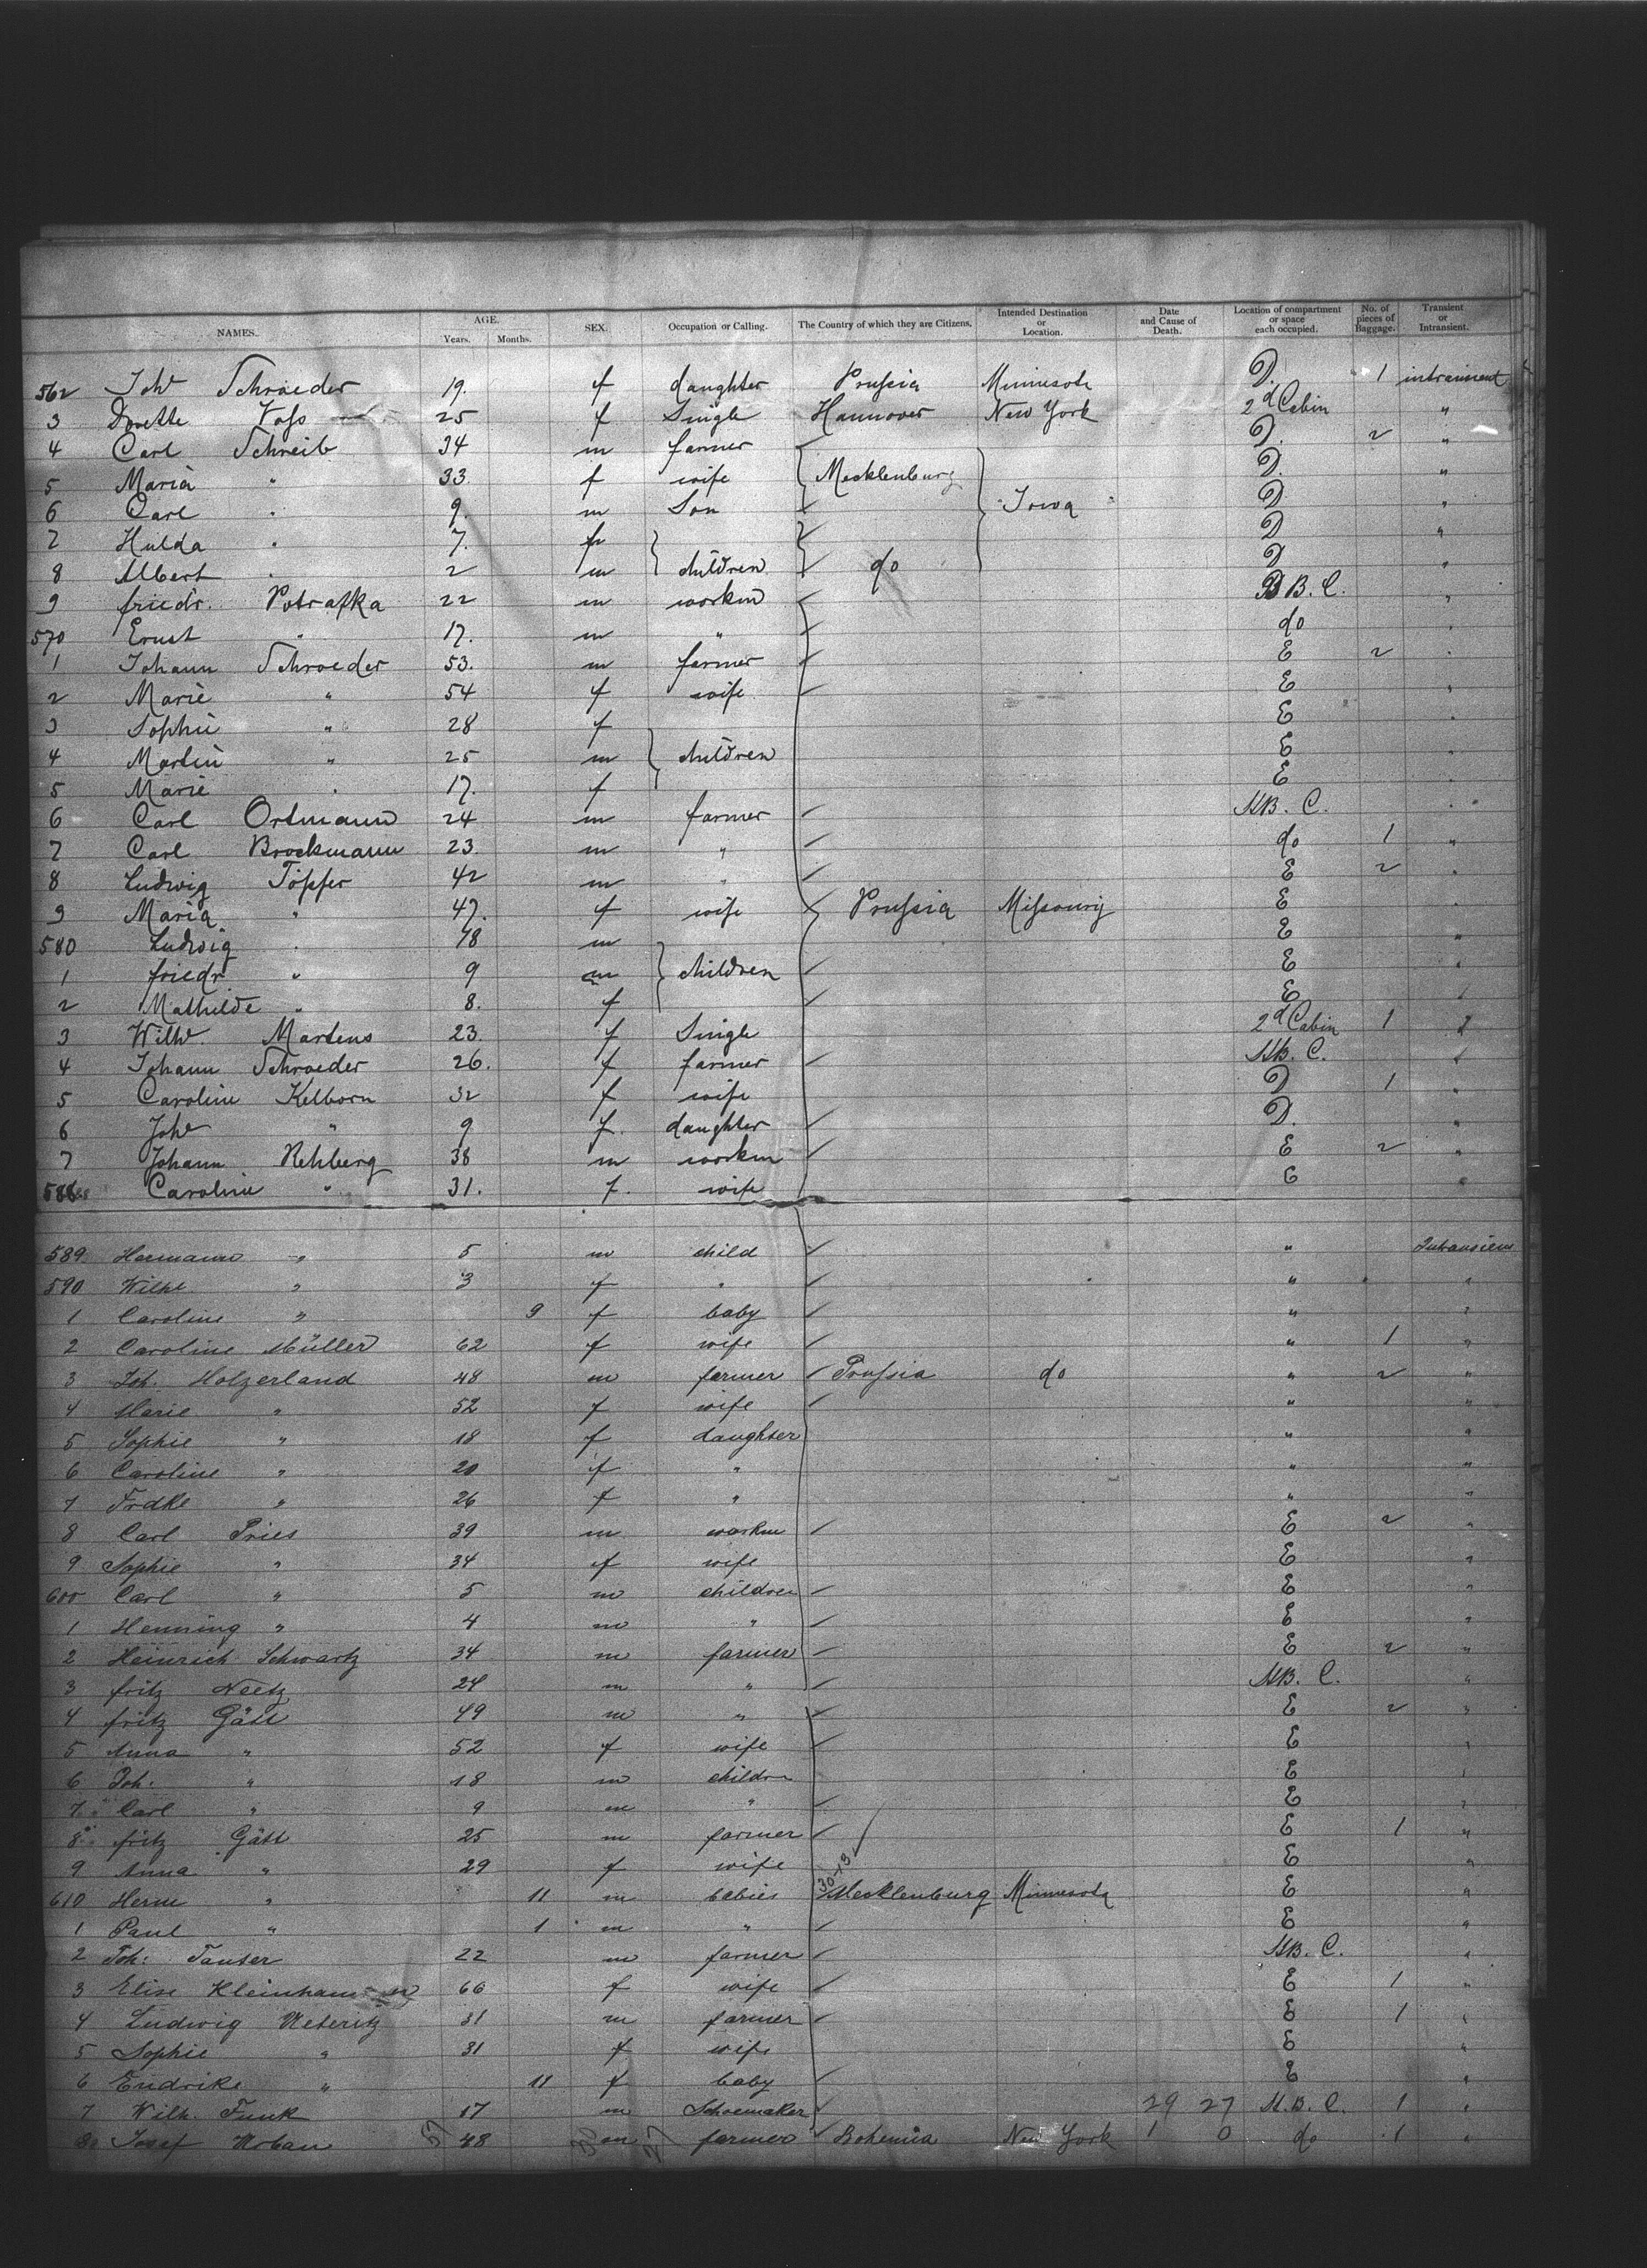 NAMES. AGE. Years. Months. SEX. Occupation or Calling. The Country of which they are Citizens. Intended Destination or Location. Date and Cause of Death. Location of compartment or space each occupied. No. of pieces of Baggage. Transient or Intransient.
562 Joh Schroeder 19. f daughter Prussia Minnesota D. 1
3 Dorette Voss 25 f Single Hannover New York 2d Cabin "
4 Carl Schreib 34 m farmer D. 2 "
5 Maria " 33. f wife Mecklenburg D. "
6 Carl " 9. m Son Iowa D "
7 Hulda " 7. f D "
8 Albert " 2 m children do D "
9 friedr. Potrafka 22 m workm B.C. "
570 Ernst " 17. m " do "
1 Johann Schroeder 53. m farmer E 2 "
2 Marie " 54 f wife E "
3 Sophie " 28 f E "
4 Martin " 25 m children E "
5 Marie " 17. f E "
6 Carl Ortmann 24 m farmer B. C. "
7 Carl Brockmann 23. m " do 1 "
8 Ludwig Töpfer 42 m " E 2 "
9 Maria " 47. f wife Prussia Missoury E "
580 Ludwig " 18 m E "
1 friedr " 9 m children E "
2 Mathilde " 8. f E "
3 Wilh. Martens 23. f Single 2d Cabin 1
4 Johann Schroeder 26. f farmer B. C. "
5 Caroline Kelborn 32 f wife D 1 "
6 Joh " 9 f. daughter D. "
7 Johann Rehberg 38 m workm E 2 "
588 Caroline " 31. f. wife E "
589. Hermann " 5 m child "
590 Wilhe " 3 f " " "
1 Caroline " 9 f baby " "
2 Caroline Müller 62 f wife " 1 "
3 Joh. Holzerland 48 m farmer Prussia do " 2 "
4 Marie " 52 f wife " "
5 Sophie " 18 f daughter " "
6 Caroline " 20 f " " "
7 Frdke " 26 f " " "
8 Carl Pries 39 m workm E 2 "
9 Sophie " 34 f wife E "
600 Carl " 5 m children E "
1 Henning " 4 m " E "
2 Heinrich Schwartz 34 m farmer E 2 "
3 fritz Neetz 24 m " B. C. "
4 fritz Gätt 49 m " E 2 "
5 Anna " 52 f wife E "
6 Joh. " 18 m childre E "
7 Carl " 9 m " E "
8 fritz Gätt 25 m farmer E 1 "
9 Anna " 29 f wife E "
610 Herm " 11 m babies Mecklenburg Minnesota E "
1 Paul " 1 m " E "
2 Joh: 22 m farmer B. C. "
3 Elise 66 f wife E 1 "
4 Ludwig 31 m farmer E 1 "
5 Sophie " 31 f wife E "
6 " 11 f baby E "
7 Wilh. Funk 17 m Schoemaker 29 27 B. C. 1 "
8 Josef Urban 48 m farmer Bohemia New York 1 0 do 1 "